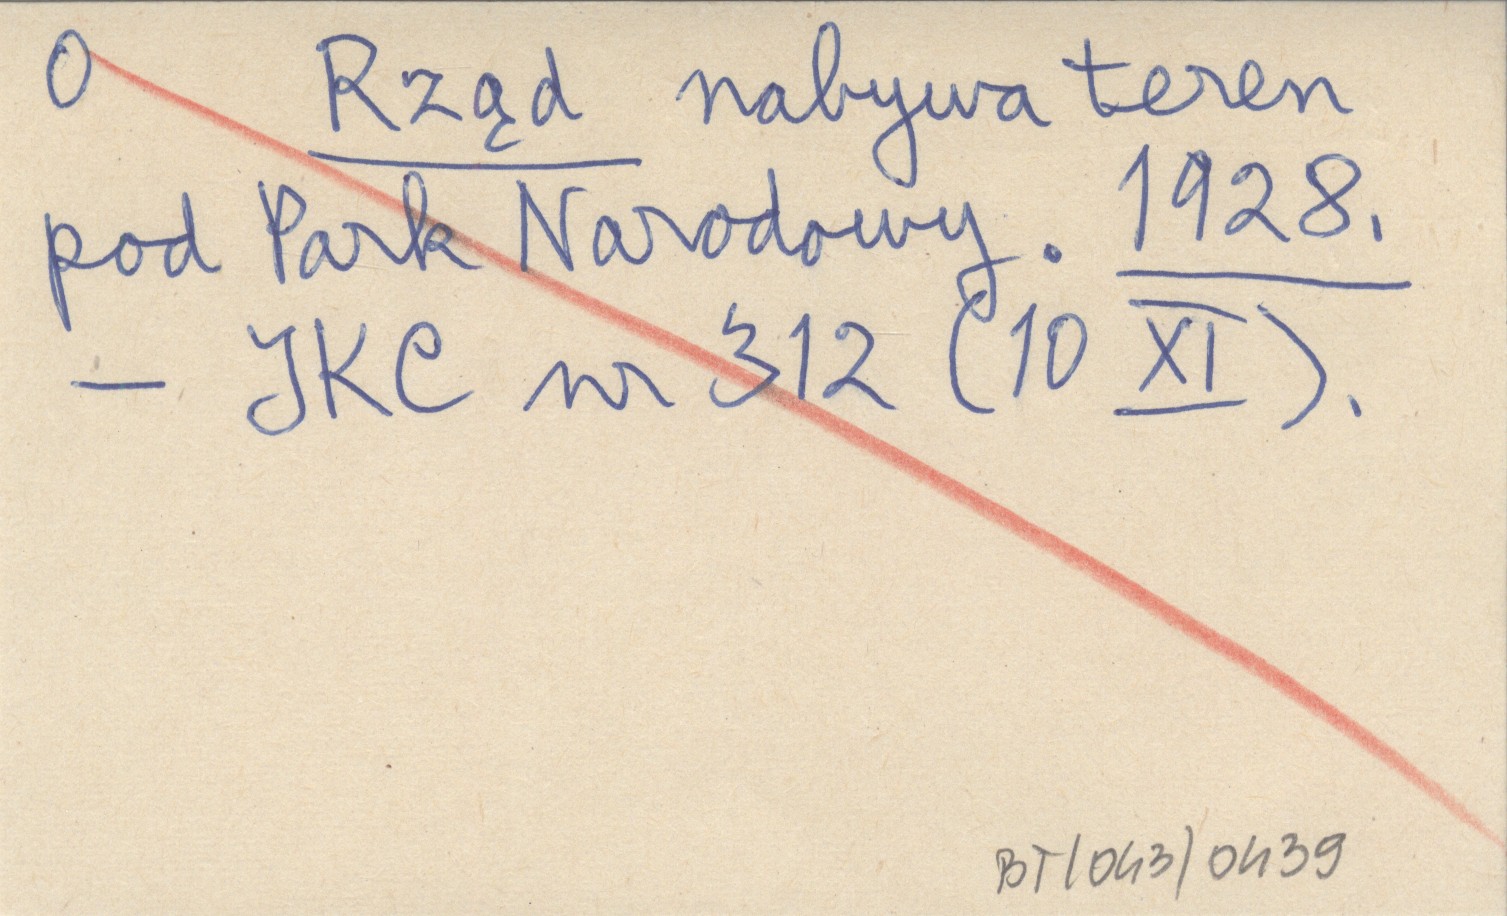 O Rząd nabywa teren
pod Park Narodowy. 1928.
— JKC nr 312 (10 XI).
BT/043/0439